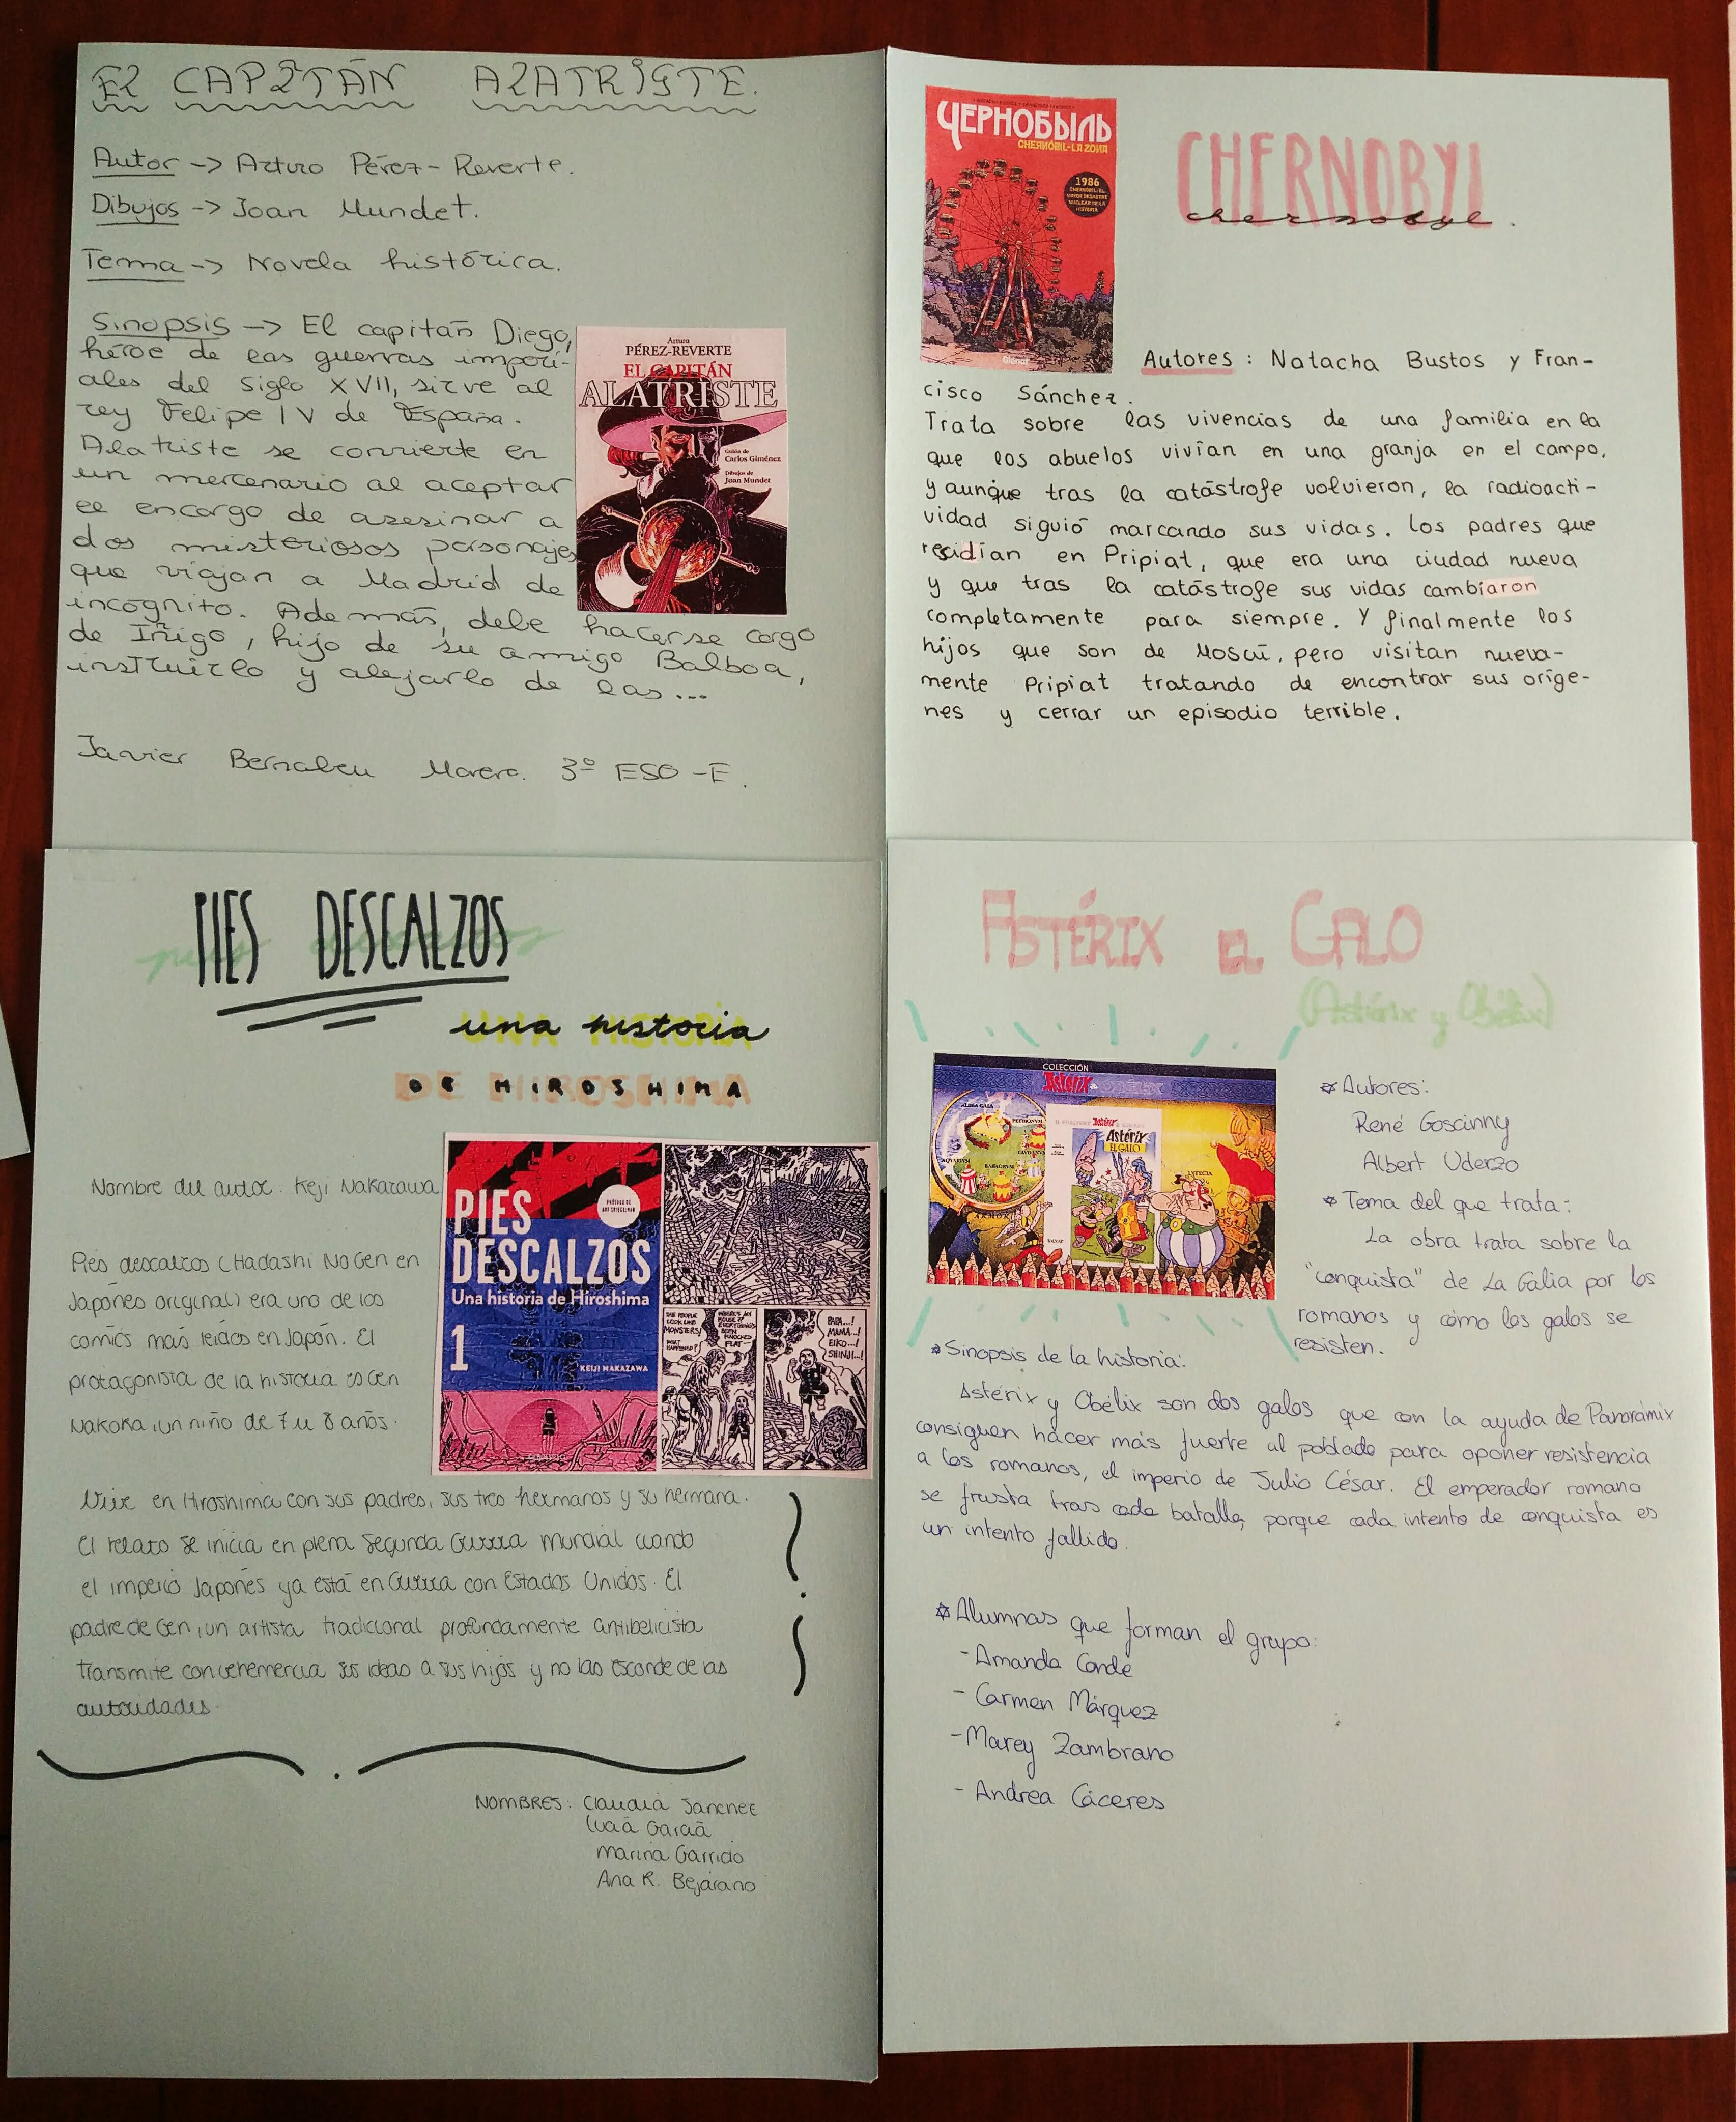 El CAPITÁN AlATRISTE.
Autor -> Arturo Pérez-Reverte.
Dibujos -> Joan Mundet.
Tema -> Novela histórica.
Sinopsis -> El capitán Diego,
héroe de las guerras imperi-
ales del Siglo XVII, sirve al
rey Felipe IV de España.
Alatriste se convierte en
un mercenario al aceptar
el encargo de asesinar a
dos misteriosos personajes
que viajan a Madrid de
incógnito. Además, debe hacerse cargo
de Iñigo, hijo de su amigo Balboa,
instruirlo y alejarlo de las...
Arturo
PÉREZ-REVERTE
EL CAPITÁN
ALATRISTE
Guión de
Carlos Giménez
Dibujos de
Joan Mundet
Javier Bernabeu Morera. 3º ESO -E.
ЧЕРНОБЫЛЬ
CHERNÓBIL-LA ZONA
1986
CHERNÓBIL: EL
MAYOR DESASTRE
NUCLEAR DE LA
HISTORIA
Glénat
CHERNOBYL
chernobyl.
Autores: Natacha Bustos y Fran-
cisco Sánchez.
Trata sobre las vivencias de una familia en la
que los abuelos vivían en una granja en el campo,
y aunque tras la catástrofe volvieron, la radioacti-
vidad siguió marcando sus vidas. Los padres que
residían en Pripiat, que era una ciudad nueva
y que tras la catástrofe sus vidas cambiaron
completamente para siempre. Y finalmente los
hijos que son de Moscú, pero visitan nueva-
mente Pripiat tratando de encontrar sus oríge-
nes y cerrar un episodio terrible.
PIES DESCALZOS
una historia
DE HIROSHIMA
Nombre del autor: Keji Nakazawa
Pies descalzos (Hadashi No Gen en
Japonés original) era uno de los
comics más leídos en Japón. El
protagonista de la historia es Gen
Nakoka, un niño de 7 u 8 años.
Vive en Hiroshima con sus padres, sus tres hermanos y su hermana.
El relato se inicia en plena Segunda Guerra Mundial cuando
el imperio Japonés ya está en Guerra con Estados Unidos. El
padre de Gen, un artista tradicional profundamente antibelicista
transmite con venemercia sus ideas a sus hijos y no las esconde de las
autoridades.
PIES
DESCALZOS
Una historia de Hiroshima
1
KEIJI NAKAZAWA
PRÓLOGO DE
ART SPIEGELMAN
THE PEOPLE
LOOK LIKE
MONSTERS!
WHAT
HAPPENED?
WHERE'S MY
HOUSE?!
EVERYTHING'S
BEEN
KNOCKED
FLAT—
PAPA...!
MAMA...!
EIKO...!
SHINJI...!
NOMBRES: Claudia Sánchez
Lucía García
Marina Garrido
Ana R. Bejarano
ASTÉRIX EL GALO
(Astérix y Obélix)
COLECCIÓN
Astérix
Astérix
EL GALO
PETIBONUM
AQUARIUM
BABAORUM
LAUDANUM
LVTECIA
SALVAT
* Autores:
René Goscinny
Albert Uderzo
* Tema del que trata:
La obra trata sobre la
"conquista" de La Galia por los
romanos y cómo los galos se
resisten.
* Sinopsis de la historia:
Astérix y Obélix son dos galos que con la ayuda de Panorámix
consiguen hacer más fuerte al poblado para oponer resistencia
a los romanos, el imperio de Julio César. El emperador romano
se frusta tras cada batalla, porque cada intento de conquista es
un intento fallido.
* Alumnas que forman el grupo:
- Amanda Conde
- Carmen Márquez
- Marey Zambrano
- Andrea Cáceres